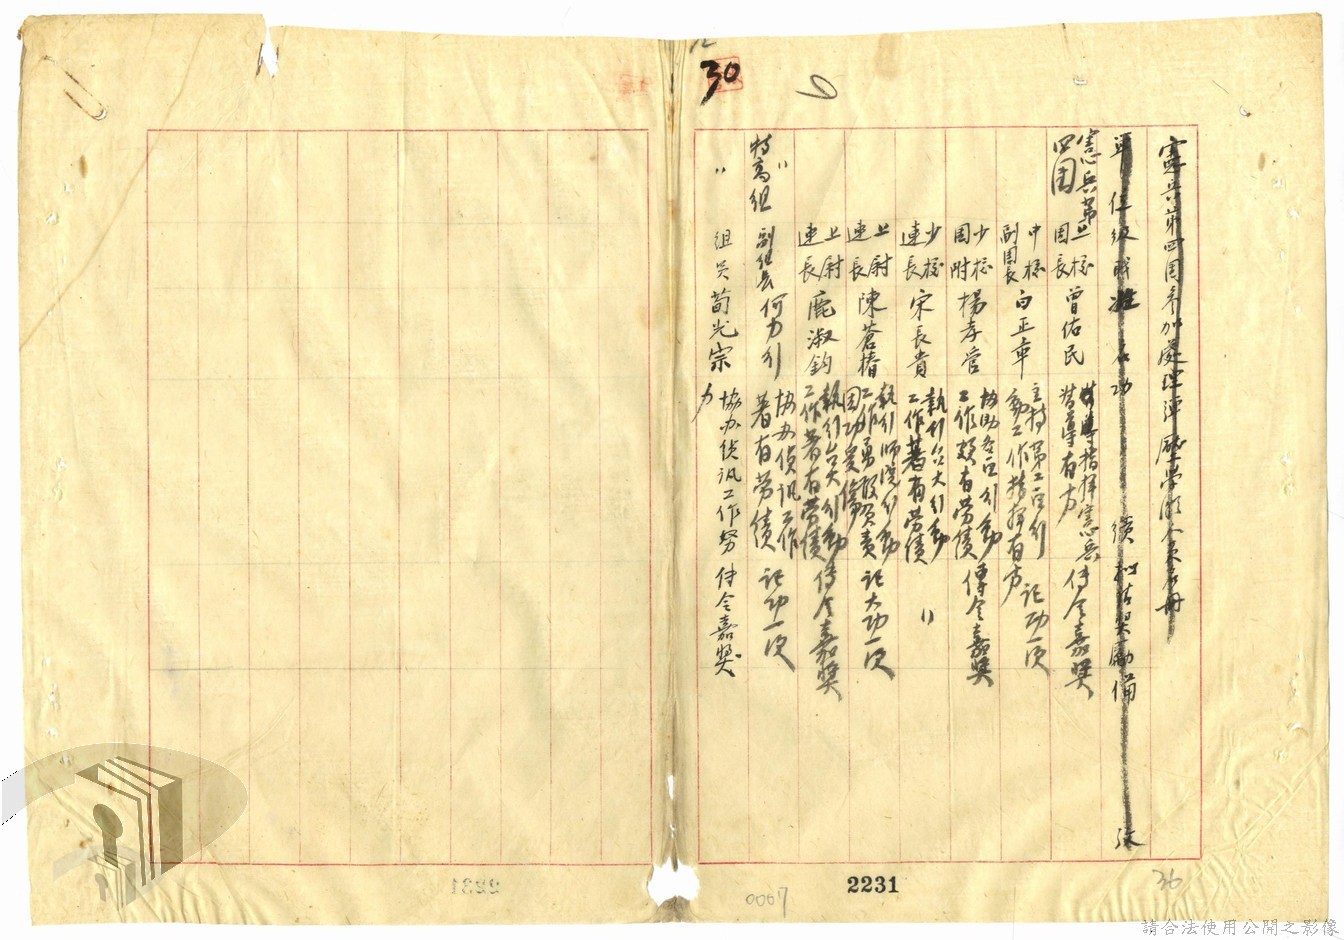 30
憲兵第四團參加處理彈壓學潮人員名冊
單位級職姓名功績擬請獎勵備考
憲兵第四團 上校團長 曾佑民 督導指揮憲兵督導有方 傳令嘉獎
中校副團長 白正章 主持第二區行動工作指揮有方 記功一次
少校團附 楊孝管 協助各區行動工作頗有勞績 傳令嘉獎
少校連長 宋長貴 執行台大行動工作著有勞績 〃
上尉連長 陳蒼椿 執行師院行動工作勇敢負責因功受傷 記大功一次
上尉連長 鹿淑鈞 執行台大行動工作著有勞績 傳令嘉獎
〃 特高組 副組長 何力行 協辦偵訊工作著有勞績 記功一次
〃 組員 荀光宗 協办偵訊工作努力 傳令嘉獎
2231
0007
36
請合法使用公開之影像